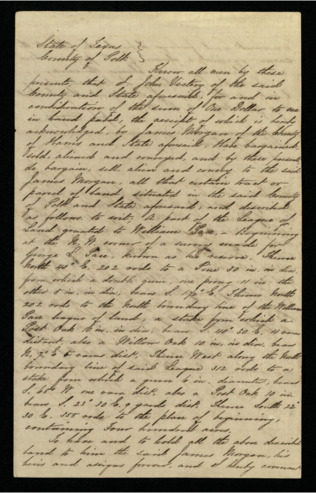 State of Texas
County of Polk
Know all men by these
presents, that I John Victory of the said
County and State aforesaid, for and in
consideration of the sum of One Dollar to me
in hand paid, the receipt of which is hereby
acknowledged, by James Morgan of the County
of Harris and State aforesaid, Have bargained,
sold, aliened and conveyed, and by these presents
do bargain, sell, alien and convey to the said
James Morgan, all that certain tract or
parcel of Land, situated in the said County
of Polk and State aforesaid, and described
as follows to wit, A part of the League of
Land granted to William Pace, beginning
at the N.W. corner of a survey made for
George L. Pace, known as his reserve. Thence
North 202 rods to a Pine 30 in. in dia.
from which a double gum, one prong 11 in. the
other 8 in. in dia. bears S. E. Thence North
202 rods to the North boundary line of the William
Pace league of land, a stake from which a
Post Oak in. in dia. bears S. 30 E.
distant, also a White Oak 10 in. in dia. bears
N. dist. Thence West along the North
boundary line of said League 312 rods to a
stake from which a gum 6 in. diameter, bears
S. W. one dist. also a Post Oak 10 in.
bears S. 21° 30 E. yards dist. Thence South 22°
30 E. 355 rods to the place of beginning,
containing Four hundred acres,
To have and to hold all the above described
land to him the said James Morgan, his
heirs and assigns forever, and I thereby covenant